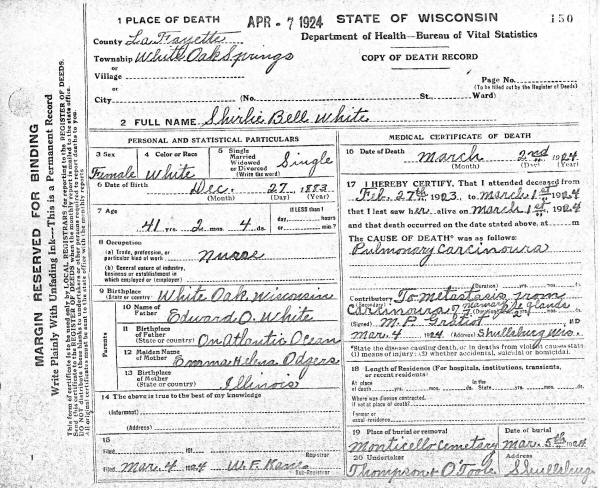 1 PLACE OF DEATH APR - 7 1924 STATE OF WISCONSIN 150
County La Fayette Department of Health—Bureau of Vital Statistics
Township White Oak Springs COPY OF DEATH RECORD
or
Village
or Page No.
(To be filled out by the Register of Deeds)
City (No. St. Ward)
2 FULL NAME Shirlie Bell White
MARGIN RESERVED FOR BINDING
Write Plainly With Unfading Ink—This is a Permanent Record
This form of certificate is to be used only by LOCAL REGISTRARS for reporting to the REGISTER OF DEEDS.
PERSONAL AND STATISTICAL PARTICULARS
3 Sex 4 Color or Race 5 Single
Married
Widowed
or Divorced
(Write the word)
Female White Single
6 Date of Birth Dec. 27 1883
(Month) (Day) (Year)
7 Age If LESS than
1 day,
41 yrs. 2 mos. 4 ds. hours
or min.?
8 Occupation
(a) Trade, profession, or
particular kind of work Nurse
(b) General nature of industry,
business or establishment in
which employed (or employer)
9 Birthplace
(State or country) White Oak Wisconsin
Parents
10 Name of
Father Edward O. White
11 Birthplace
of Father
(State or country) On Atlantic Ocean
12 Maiden Name
of Mother Emma Helena Odgers
13 Birthplace
of Mother
(State or country) Illinois
14 The above is true to the best of my knowledge
(Informant)
(Address)
15
Filed 191
Registrar
Filed Mar. 4 1924 W. F. Kane
Sub-Registrar
MEDICAL CERTIFICATE OF DEATH
16 Date of Death
March 2nd 1924
(Month) (Day) (Year)
17 I HEREBY CERTIFY, That I attended deceased
from Feb. 27th 1923, to March 1st 1924
that I last saw her alive on March 1st 1924
and that death occurred on the date stated above, at m
The CAUSE OF DEATH* was as follows:
Pulmonary Carcinoura
Contributory To metastasis from
(Secondary)
Carcinoura of mammary glands
(Signed) MD
Mar. 4 1924 (Address) Shullsburg Wis.
*State the disease causing death, or in deaths from violent causes state
(1) means of injury; (2) whether accidental, suicidal or homicidal.
18 Length of Residence (For hospitals, institutions, transients,
or recent residents)
At place
of death yrs. mos. ds. In the
State yrs. mos. ds.
Where was disease contracted,
if not at place of death?
Former or
usual residence
19 Place of burial or removal Date of burial
Monticello Cemetary Mar. 5th 1924
20 Undertaker Address
Thompson & O'Toole Shullsburg